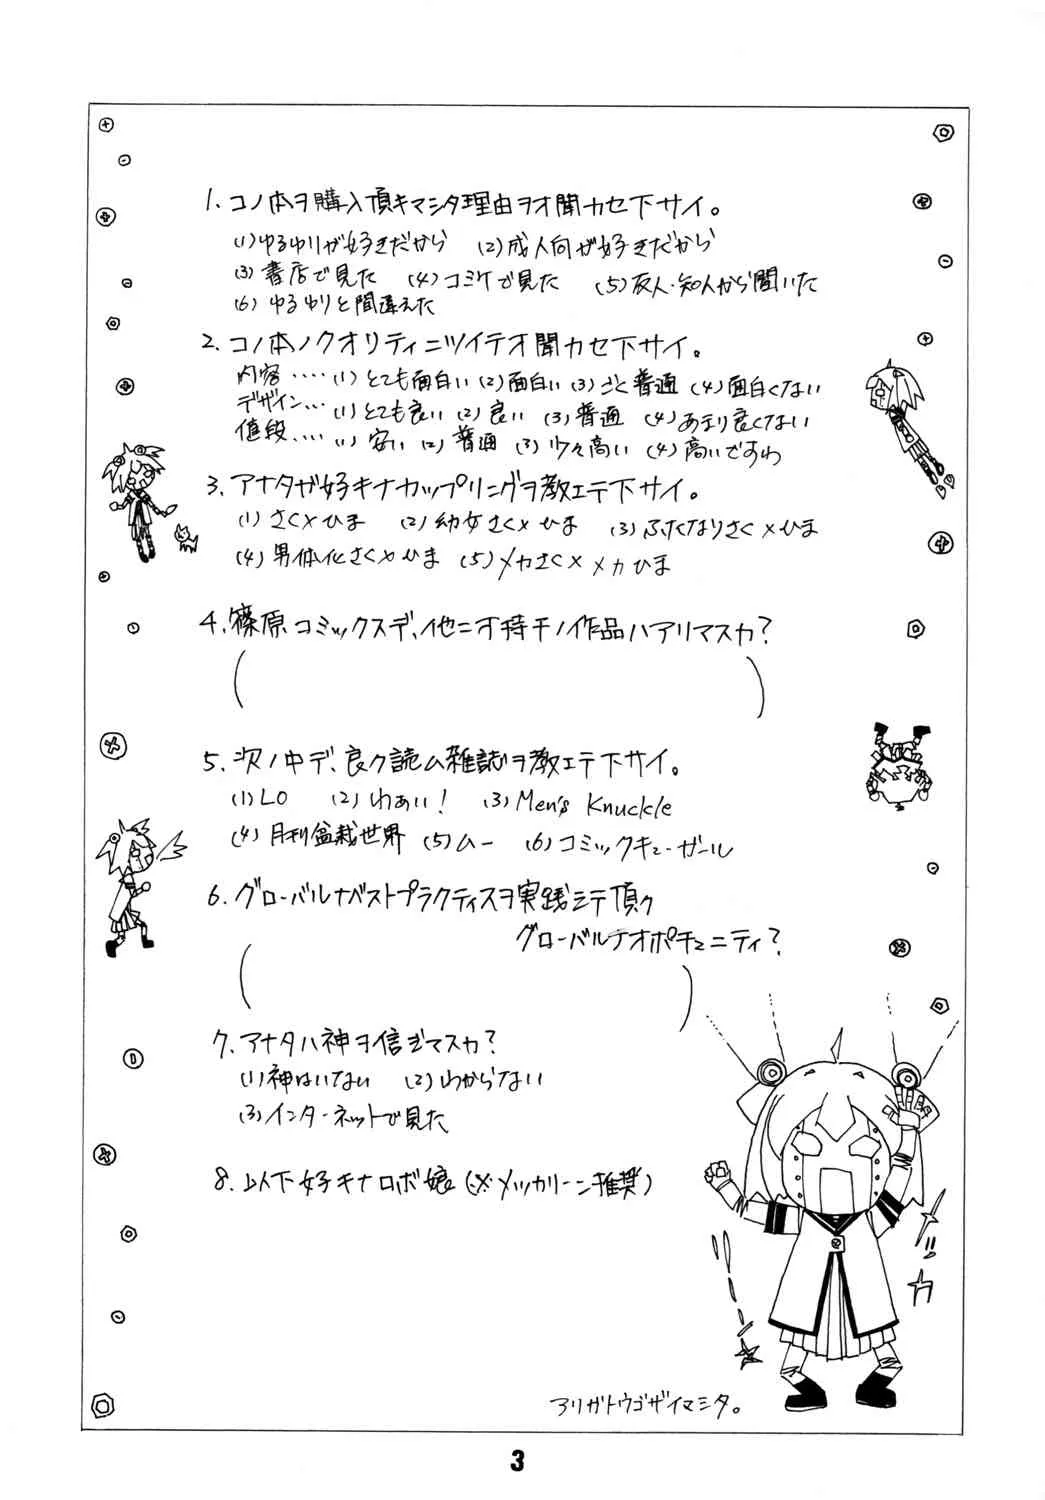 1. コノ本ヲ購入頂キマシタ理由ヲオ聞カセ下サイ。
(1)ゆるゆりが好きだから (2)成人向が好きだから
(3)書店で見た (4)コミケで見た (5)友人・知人から聞いた
(6)ゆるゆりと間違えた
2. コノ本ノクオリティニツイテオ聞カセ下サイ。
内容‥‥(1)とても面白い(2)面白い(3)ごく普通(4)面白くない
デザイン…(1)とても良い(2)良い(3)普通(4)あまり良くない
値段‥‥(1)安い(2)普通(3)少々高い(4)高いですわ
3. アナタガ好キナカップリングヲ教エテ下サイ。
(1)さく×ひま (2)幼女さく×ひま (3)ふたなりさく×ひま
(4)男体化さく×ひま (5)メカさく×メカひま
4. 篠原コミックスデ、他ニオ持チノ作品ハアリマスカ?
( )
5. 次ノ中デ、良ク読ム雑誌ヲ教エテ下サイ。
(1)LO (2)わぁい! (3)Men's Knuckle
(4)月刊盆栽世界 (5)ムー (6)コミックキューガール
6. グローバルナベストプラクティスヲ実践シテ頂ク
グローバルナオポチュニティ?
( )
7. アナタハ神ヲ信ジマスカ?
(1)神はいない (2)わからない
(3)インターネットで見た
8. 以下好キナロボ娘(※メッカリーン推奨)
アリガトウゴザイマシタ。
3